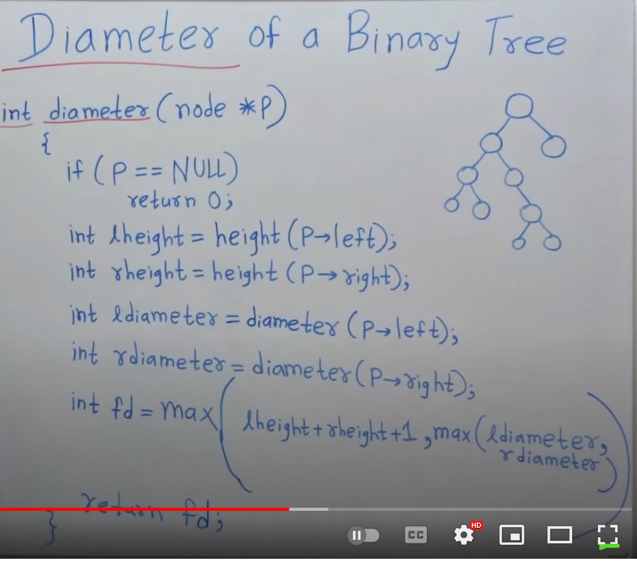 Diameter of a Binary Tree
int diameter (node *P)
{
if (P == NULL)
return 0;
int lheight = height (P→left);
int rheight = height (P→right);
int ldiameter = diameter (P→left);
int rdiameter = diameter (P→right);
int fd = max ( lheight + rheight + 1 , max ( ldiameter,
rdiameter ) )
return fd;
}
CC
HD